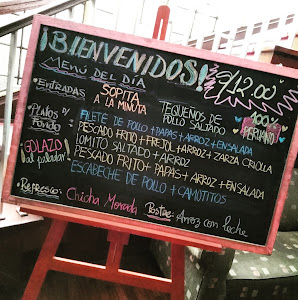 ¡BIENVENIDOS!
S/12.00
Menú DEL DÍA
ENTRADAS
SOPITA
A LA MINUTA
TEQUEÑOS DE
POLLO SALTADO
100%
PERUANO
PLATOS
FONDO
FILETE DE POLLO + PAPAS + ARROZ + ENSALADA
PESCADO FRITO + FREJOL + ARROZ + ZARZA CRIOLLA
GOLAZO
al paladar!
LOMITO SALTADO + ARROZ
PESCADO FRITO + PAPAS + ARROZ + ENSALADA
ESCABECHE DE POLLO + CAMOTITOS
Refresco: Chicha Morada Postre: Arroz con leche